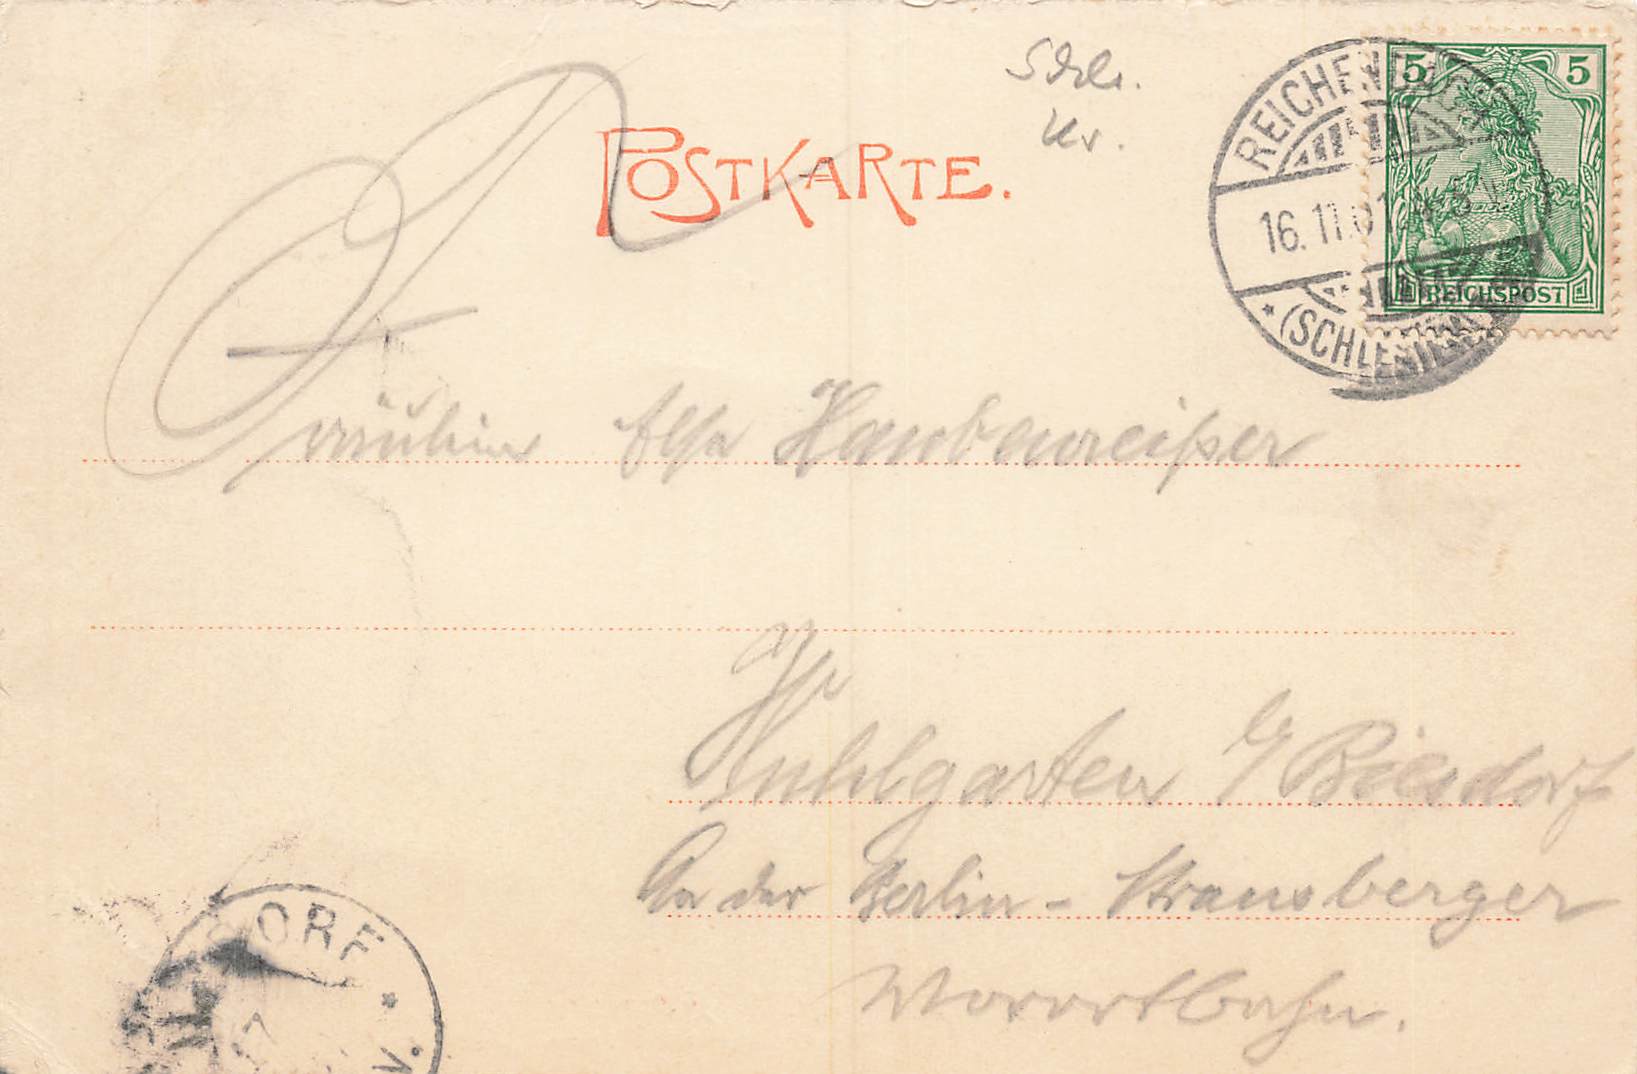 Schles.
POSTKARTE.
5 5
REICHENBACH
16.11.01
(SCHLESIEN)
REICHSPOST
Fräulein Elsa
Wuhlgarten b/ Biesdorf
An der Berlin - Strausberger
Vorortbahn.
DORF